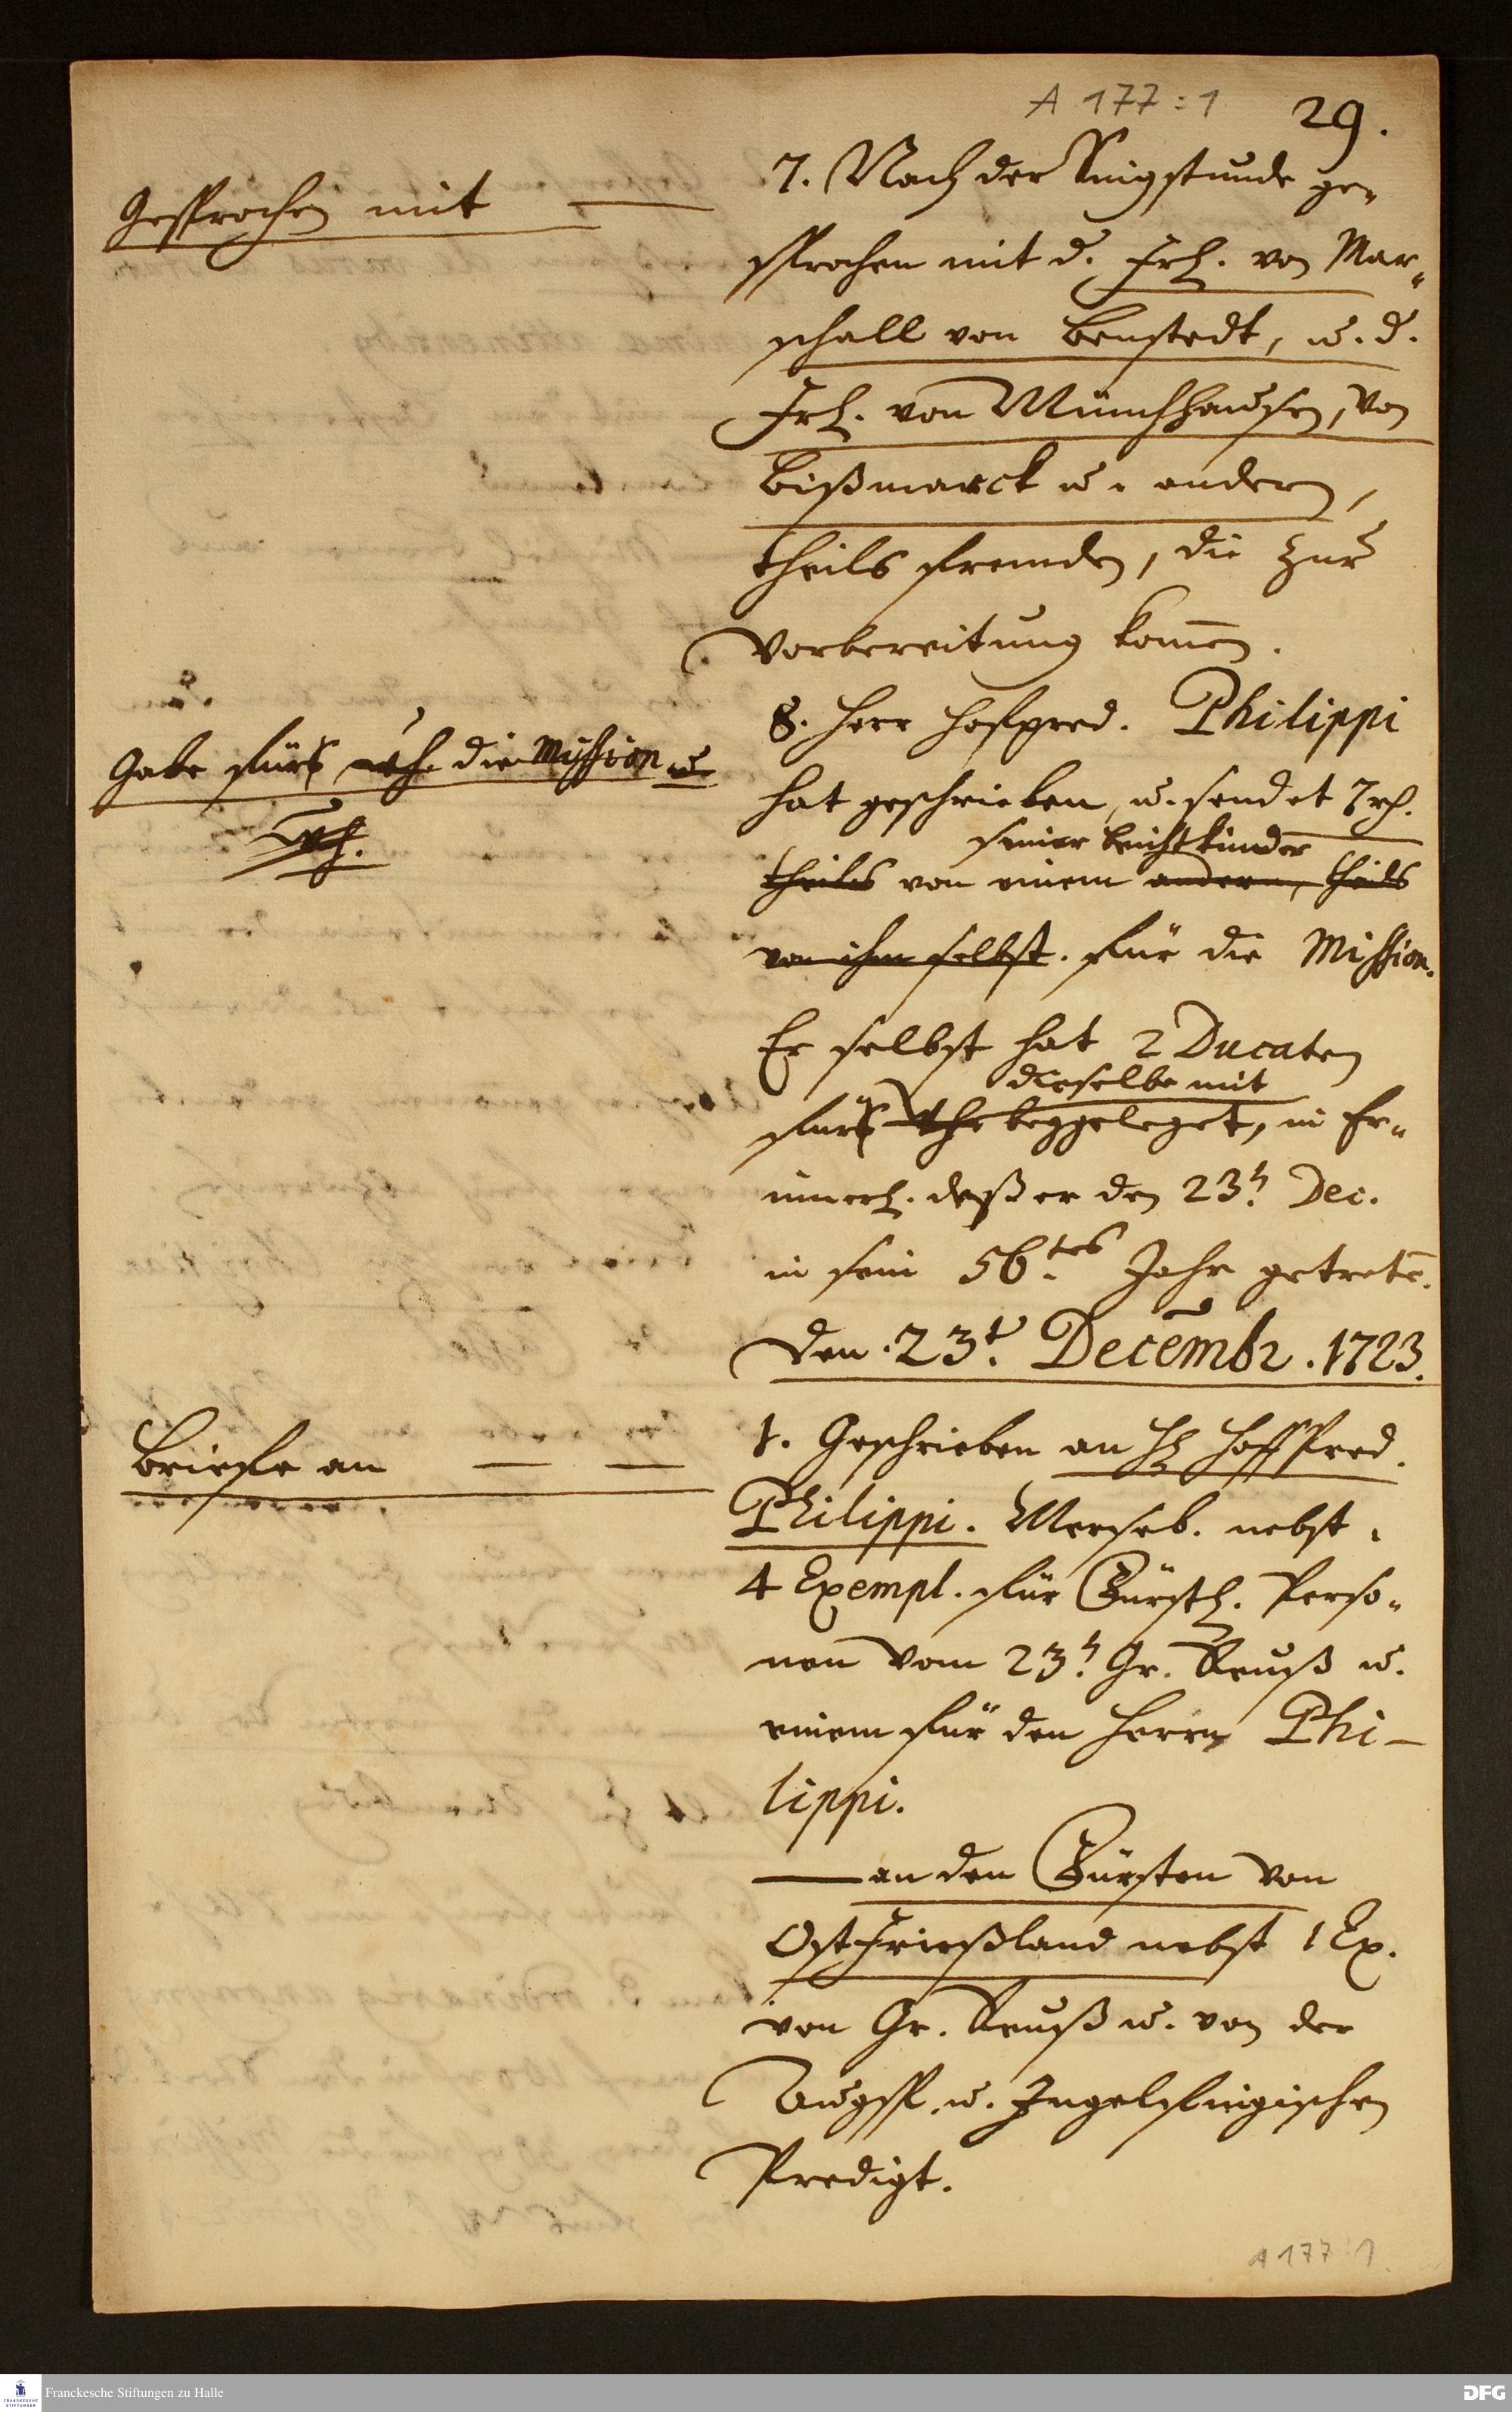 A 177:1 29.
Gesprochen mit
7. Nach der Singstunde ge-
sprochen mit d. Frh. von Mar-
schall von Benstedt, u. d.
Frh. von Münchhausen, von
Bißmarck u. andern,
theils fremden, die zur
Vorbereitung komen.
Gabe fürs die Mission
8. Herr Hofpred. Philippi
hat geschrieben, u. sendet 7 rh.
seiner Beichtkinder
theils von einem andern, theils
von ihm selbst. für die Mission.
Er selbst hat 2 Ducaten
dieselbe mit
beygeleget, in Er-
innerh. daß er den 23. Dec.
in sein 56.tes Jahr getrete.
Den 23.t Decembr. 1723.
Briefe an
1. Geschrieben an H Hoff Pred.
Philippi. Merseb. nebst
4 Exempl. für Fürstl. Perso-
nen vom 23. Gr. Reuß u.
einem für den Herrn Phi-
lippi.
— an den Fürsten von
Ost Frießland nebst 1 Ex.
von Gr. Reuß u. von der
Augsp. u. Ingelfingischen
Predigt.
A 177:1
Franckesche Stiftungen zu Halle
DFG